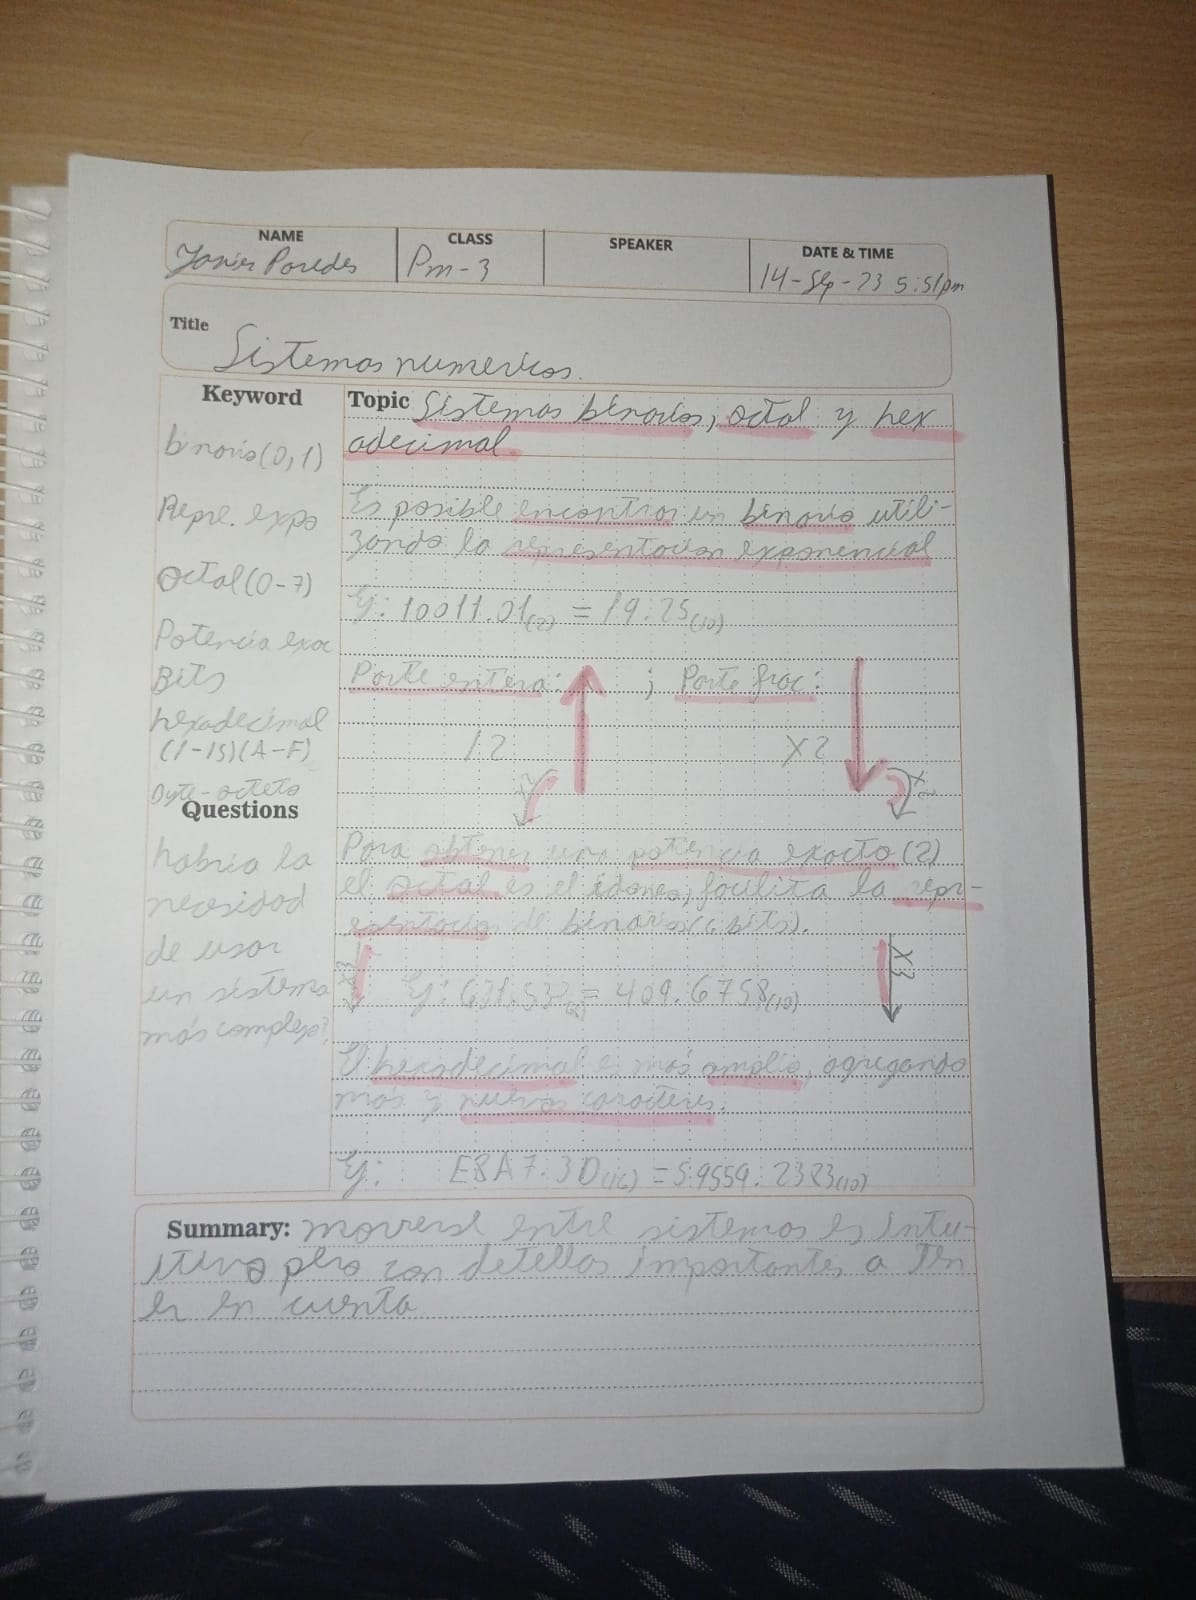 NAME CLASS SPEAKER DATE & TIME
Javier Paredes Pm-3 14-Sep-23 5:51pm
Title
Sistemas numericos.
Keyword
binario(0,1)
Repre. expo
octal(0-7)
Potencia exac
Bits
hexadecimal
(1-15)(A-F)
Byte-octeto
Questions
habria la
necesidad
de usar
un sistema
más complejo?
Topic Sistemas binarios, octal y hex
adecimal
Es posible encontrar un binario utili-
zando la representacion exponencial
Ej: 10011.01(2) = 19.25(10)
Parte entera: ; Parte frac:
/2 X2
Para obtener una potencia exacta (2)
el octal es el idoneo, facilita la repr-
esentacion de binarios(6 bits).
x3 X3
Ej: 631.532 = 409.6758(10)
El hexadecimal es más amplio, agregando
más y nuevos caracteres.
Ej: E8A7.3D(16) = 5.9559.2383(10)
Summary: moverse entre sistemas es intu-
itivo pero con detellas importantes a ten
er en cuenta